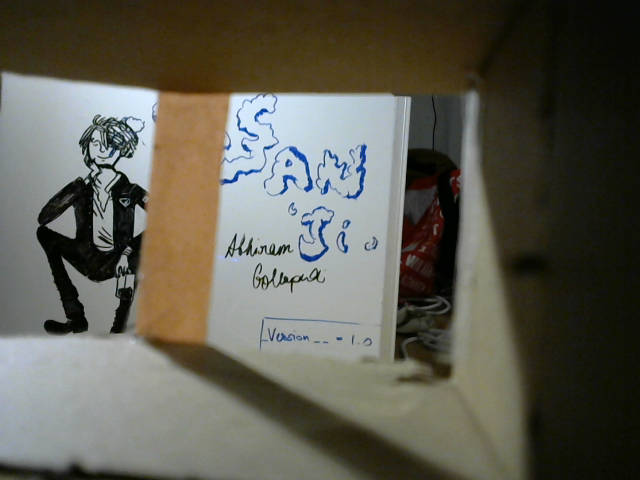 SAN
Ji
Abhiram
Gollapudi
Version__= 1.0